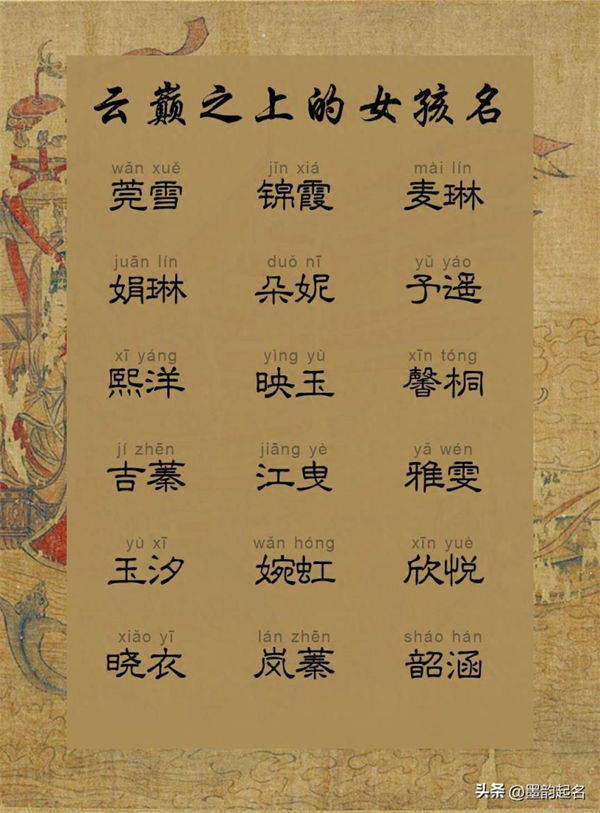 云巅之上的女孩名
wǎn xuě jǐn xiá mài lín
莞雪 锦霞 麦琳
juān lín duǒ nī yǔ yáo
娟琳 朵妮 予遥
xī yáng yìng yù xīn tóng
熙洋 映玉 馨桐
jí zhēn jiāng yè yǎ wén
吉蓁 江曳 雅雯
yù xī wǎn hóng xīn yuè
玉汐 婉虹 欣悦
xiǎo yī lán zhēn sháo hán
晓衣 岚蓁 韶涵
头条 @墨韵起名